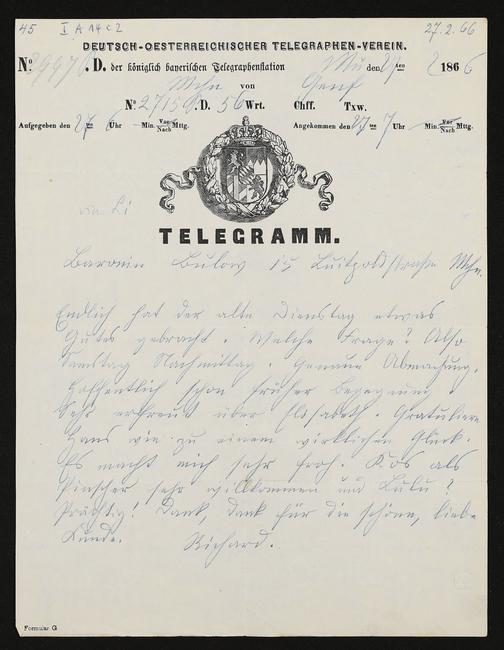 45 I A 14 c 2
27. 2. 66
DEUTSCH-OESTERREICHISCHER TELEGRAPHEN-VEREIN.
No. D. der königlich bayerischen Telegraphenstation Mü den 27 ten 2 1866
Mchn von Genf
No. 2715 D. 56 Wrt. Chff. Txw.
Aufgegeben den 27 ten 6 Uhr Min. Vor Nach Mttg. Angekommen den 27 ten 7 Uhr Min. Vor Nach Mttg.
TELEGRAMM.
Baronin Bulow 15 Luitpoldstraße Mchn.
Endlich hat der alte Dienstag etwas
Gutes gebracht. Welche Frage? Also
Samstag Nachmittag. Genaue Abmachung.
Hoffentlich schon früher Begegnung.
Sehr erfreut über Elisabeth. Gratuliere
Hans wie zu einem wirklichen Glück.
Es macht mich sehr froh. Kos als
Pinscher sehr willkommen und Lulu?
Prächtig! Dank, dank für die schöne, liebe
Kunde. Richard.
Formular G